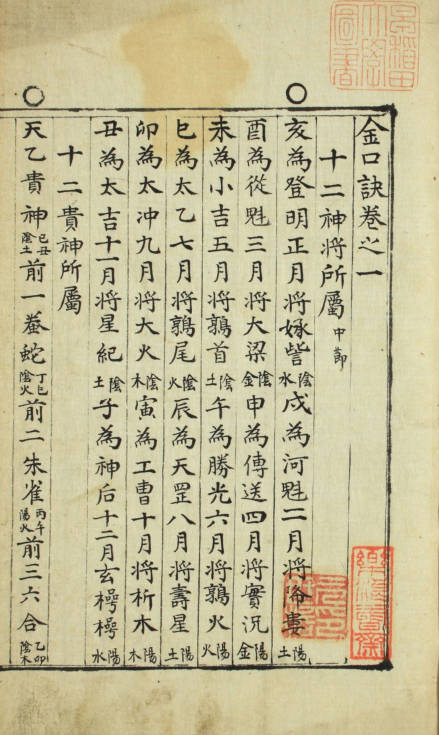 早稲田大學圖書
金口訣卷之一
十二神將所屬中節
亥為登明正月將娵訾陰水戌為河魁二月將婁陽土
酉為從魁三月將大梁陰金申為傳送四月將實況陽金
未為小吉五月將鶉首陰土午為勝光六月將鶉火陽火
巳為太乙七月將鶉尾陰火辰為天罡八月將壽星陽土
卯為太冲九月將大火陰木寅為工曹十月將析木陽木
丑為太吉十一月將星紀陰土子為神后十二月玄枵枵陽水
十二貴神所屬
天乙貴神己丑陰土前一螣蛇丁巳陰火前二朱雀丙午陽火前三六合乙卯陰木